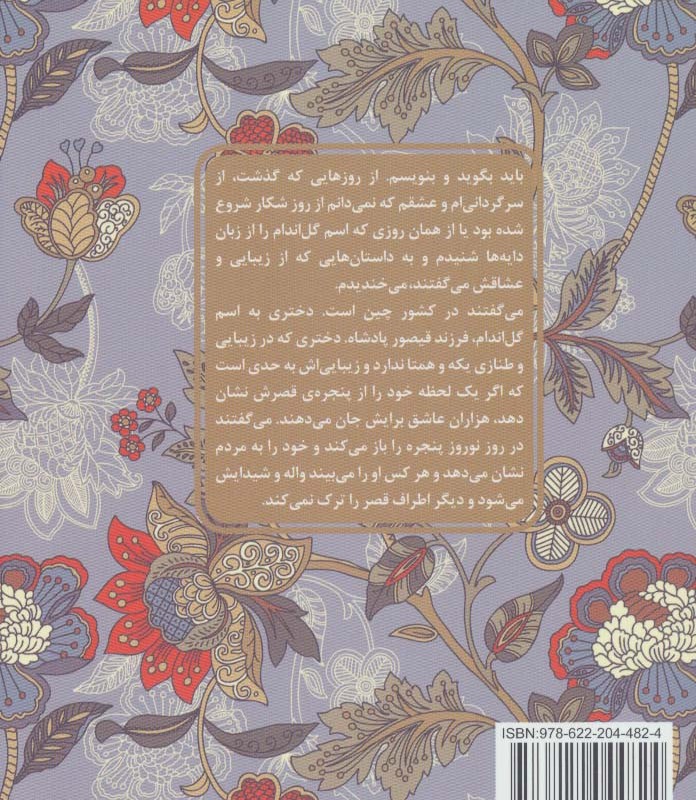 باید بگوید و بنویسم. از روزهایی که گذشت، از
سرگردانی‌ام و عشقم که نمی‌دانم از روز شکار شروع
شده بود یا از همان روزی که اسم گل‌اندام را از زبان
دایه‌ها شنیدم و به داستان‌هایی که از زیبایی و
عشاقش می‌گفتند، می‌خندیدم.
می‌گفتند در کشور چین است. دختری به اسم
گل‌اندام، فرزند قیصور پادشاه. دختری که در زیبایی
و طنازی یکه و همتا ندارد و زیبایی‌اش به حدی است
که اگر یک لحظه خود را از پنجره‌ی قصرش نشان
دهد، هزاران عاشق برایش جان می‌دهند. می‌گفتند
در روز نوروز پنجره را باز می‌کند و خود را به مردم
نشان می‌دهد و هر کس او را می‌بیند واله و شیدایش
می‌شود و دیگر اطراف قصر را ترک نمی‌کند.
ISBN:978-622-204-482-4